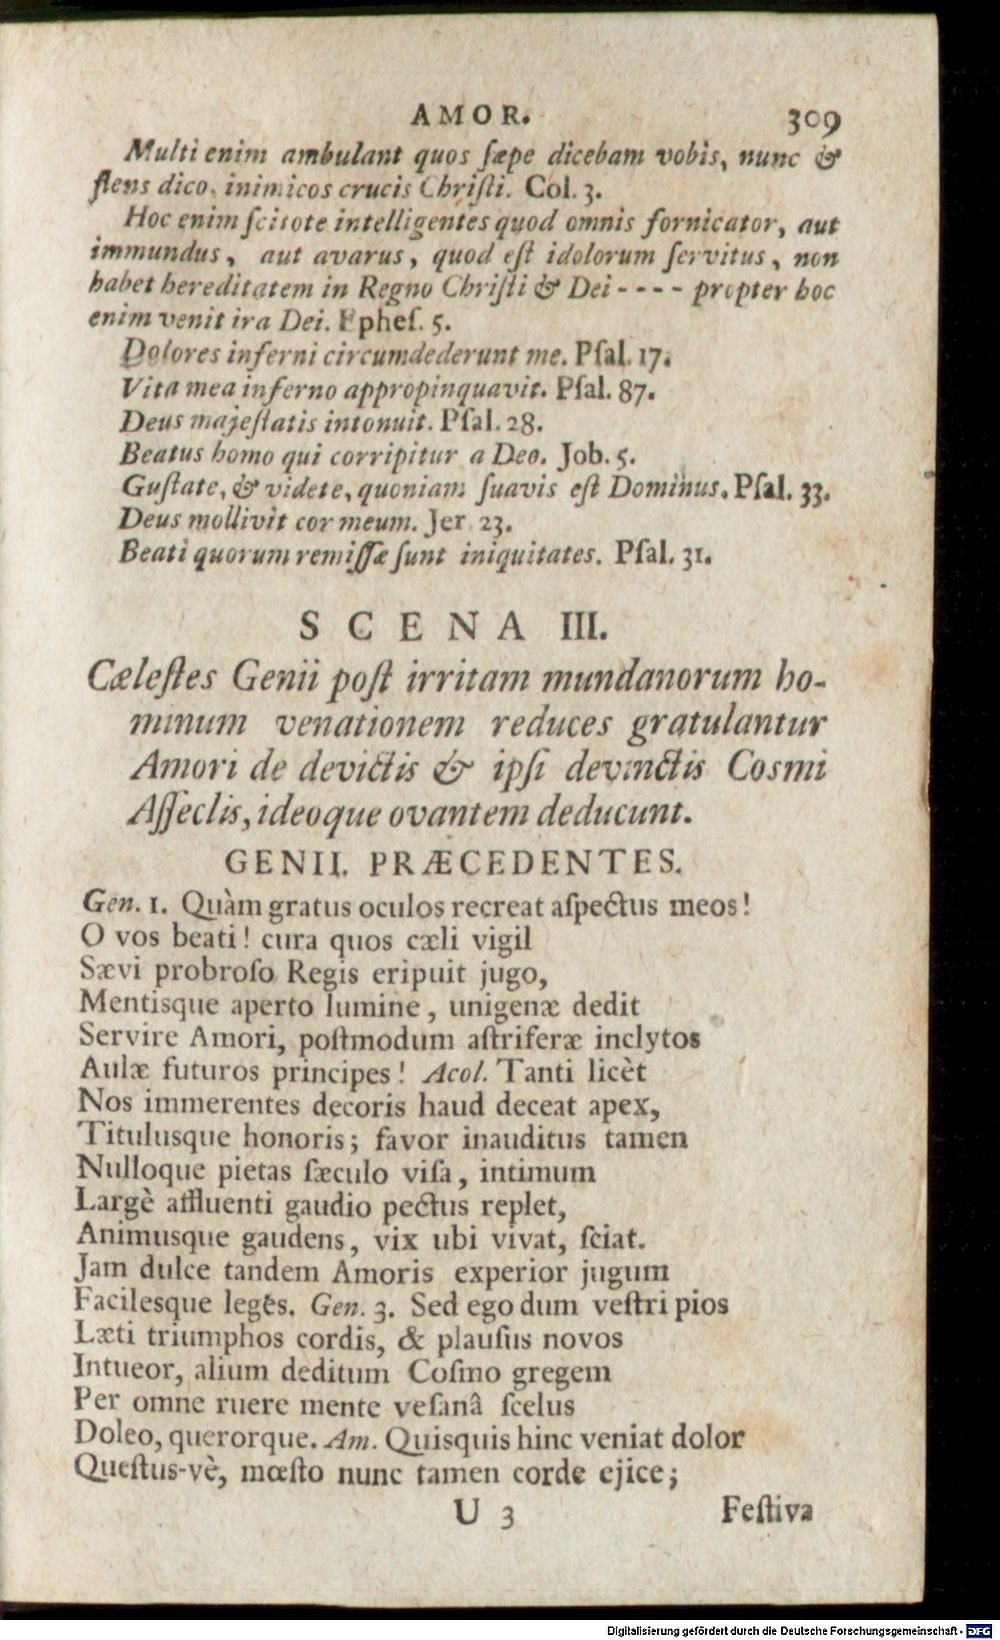 AMOR. 309
Multi enim ambulant quos ſæpe dicebam vobis, nunc &
flens dico, inimicos crucis Chriſti. Col. 3.
Hoc enim ſcitote intelligentes quod omnis fornicator, aut
immundus, aut avarus, quod eſt idolorum ſervitus, non
habet hereditatem in Regno Chriſti & Dei - - - - propter hoc
enim venit ira Dei. Epheſ. 5.
Dolores inferni circumdederunt me. Pſal. 17.
Vita mea inferno appropinquavit. Pſal. 87.
Deus majeſtatis intonuit. Pſal. 28.
Beatus homo qui corripitur a Deo. Job. 5.
Guſtate, & videte, quoniam ſuavis eſt Dominus. Pſal. 33.
Deus mollivit cor meum. Jer. 23.
Beati quorum remiſſæ ſunt iniquitates. Pſal. 31.
SCENA III.
Cæleſtes Genii poſt irritam mundanorum ho-
minum venationem reduces gratulantur
Amori de devictis & ipſi devinctis Cosmi
Aſſeclis, ideoque ovantem deducunt.
GENII. PRÆCEDENTES.
Gen. 1. Quàm gratus oculos recreat aſpectus meos!
O vos beati! cura quos cæli vigil
Sævi probroſo Regis eripuit jugo,
Mentisque aperto lumine, unigenæ dedit
Servire Amori, poſtmodum aſtriferæ inclytos
Aulæ futuros principes! Acol. Tanti licèt
Nos immerentes decoris haud deceat apex,
Titulusque honoris; favor inauditus tamen
Nulloque pietas ſæculo viſa, intimum
Largè affluenti gaudio pectus replet,
Animusque gaudens, vix ubi vivat, ſciat.
Jam dulce tandem Amoris experior jugum
Facilesque leges. Gen. 3. Sed ego dum veſtri pios
Læti triumphos cordis, & plauſus novos
Intueor, alium deditum Coſmo gregem
Per omne ruere mente veſanâ ſcelus
Doleo, querorque. Am. Quisquis hinc veniat dolor
Queſtus-vè, mœſto nunc tamen corde ejice;
U 3 Feſtiva
Digitalisierung gefördert durch die Deutsche Forschungsgemeinschaft - DFG